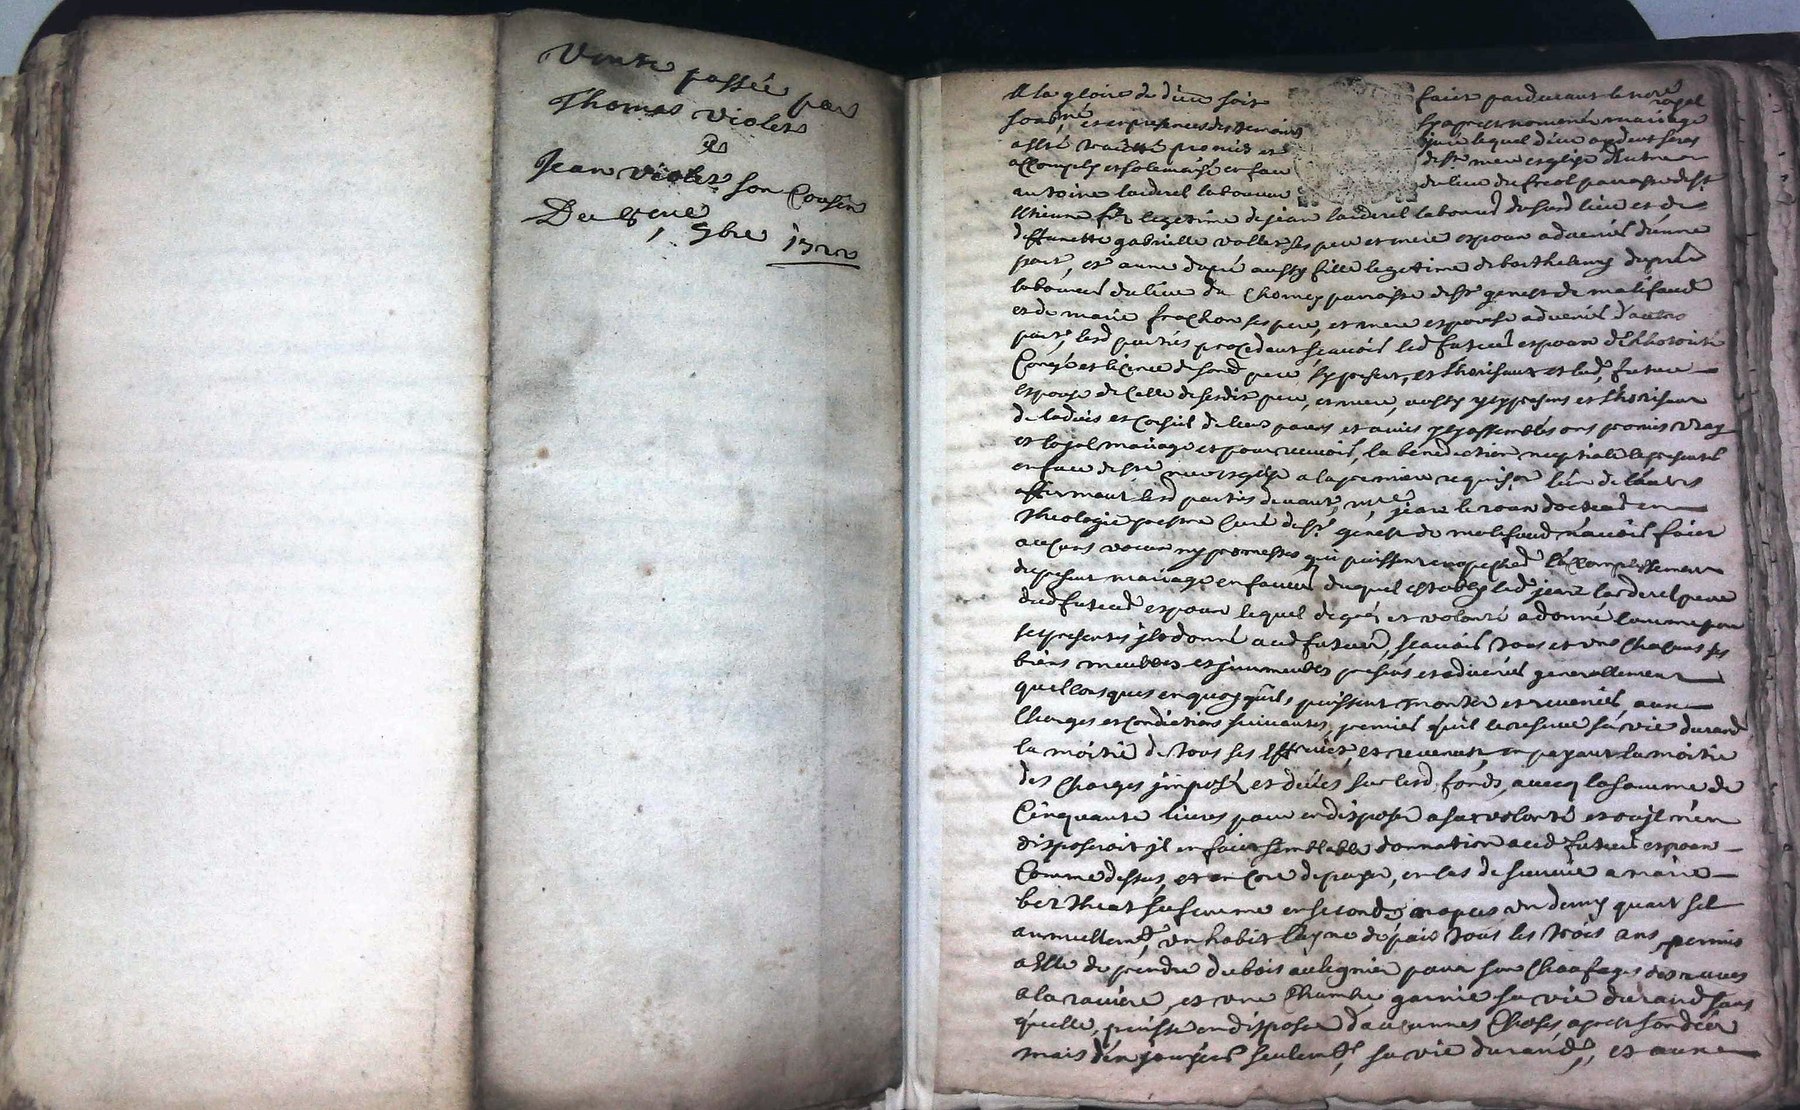 Vente passée par
Thomas Violet
A
Jean Violet son Cousin
Du 9bre 1722
A la gloire de dieu soit faict pardevant le no.re royal
soub.né et en presences des temoins mariage
lequel dieu aydant sera
accomply et solemnisé en face de s.te mere esglise Entre
antoine larderel laboureur du lieu du parroisse de s.t
Etienne fils legitime de jean larderel laboureur dud lieu et de
deffunette gabrielle vollet ses pere et mere espoux advenir d'unne
part, et anne dupré aussy fille legitime de barthelemy dupré
laboureur du lieu du parroisse de s.t genest de malifaud
et de marie frachon ses pere, et mere espouse advenir d'autre
part, lesd parties procedant scavoir led futeur espoux de l'hotorité
Congé et licence de sond pere, icy present, et l'horisant et lad.e future
Espouse de Celle de sesdit pere, et mere, aussy icy presens et l'horisans
de ladvis et Conseil de leurs parens et amis icy assemblés ont promis vray
et loyal mariage et pour recevoir, la benediction nuptiale se presenter
en face de s.te mere esglise a la premiere requis.on l'un de l'autre
affirmant lesd parties devant, m.re jean docteur en
Theologie prestre Curé de s.t genest de malifaud n'avoir faict
aucuns voeux ny promesses qui puissent empecher l'accomplissement
du present mariage en faveur duquel estably led jean larderel pere
dud futeur espoux lequel de gré, et volonté a donné comme par
ses presentes il donne aud futeur scavoir tous et uns chacuns ses
biens meubles et immeubles presens et advenir generallement
quelconques en quoy qu'ils, puissent monter et revenir, aux
Charges et conditions suivantes, premier qu'il se reserve sa vie durand
la moitié de tous ses effruict, et revenus, en payant la moitié
des Charges imposé et deües sur lesd fonds, avecq la somme de
Cinquante livres pour en disposer a sa volonté et ou il n'en
disposeroit il en faict semblable donnation aud futeur espoux
Comme dessus, et en Core de payer, en Cas de survie a marie
sa femme en secondes nopces un demy quart sel
annuellem.t, un habit layne de païs tous les trois ans, permis
a Elle de prendre du bois au lignier pour son Chaufage des raves
a la raviere, et une Chambre garnie sa vie durand sans
qu'elle, puisse en disposer d'aucunnes Choses apres son deces
mais d'en jouyr seulem.t, sa vie durand, et aux